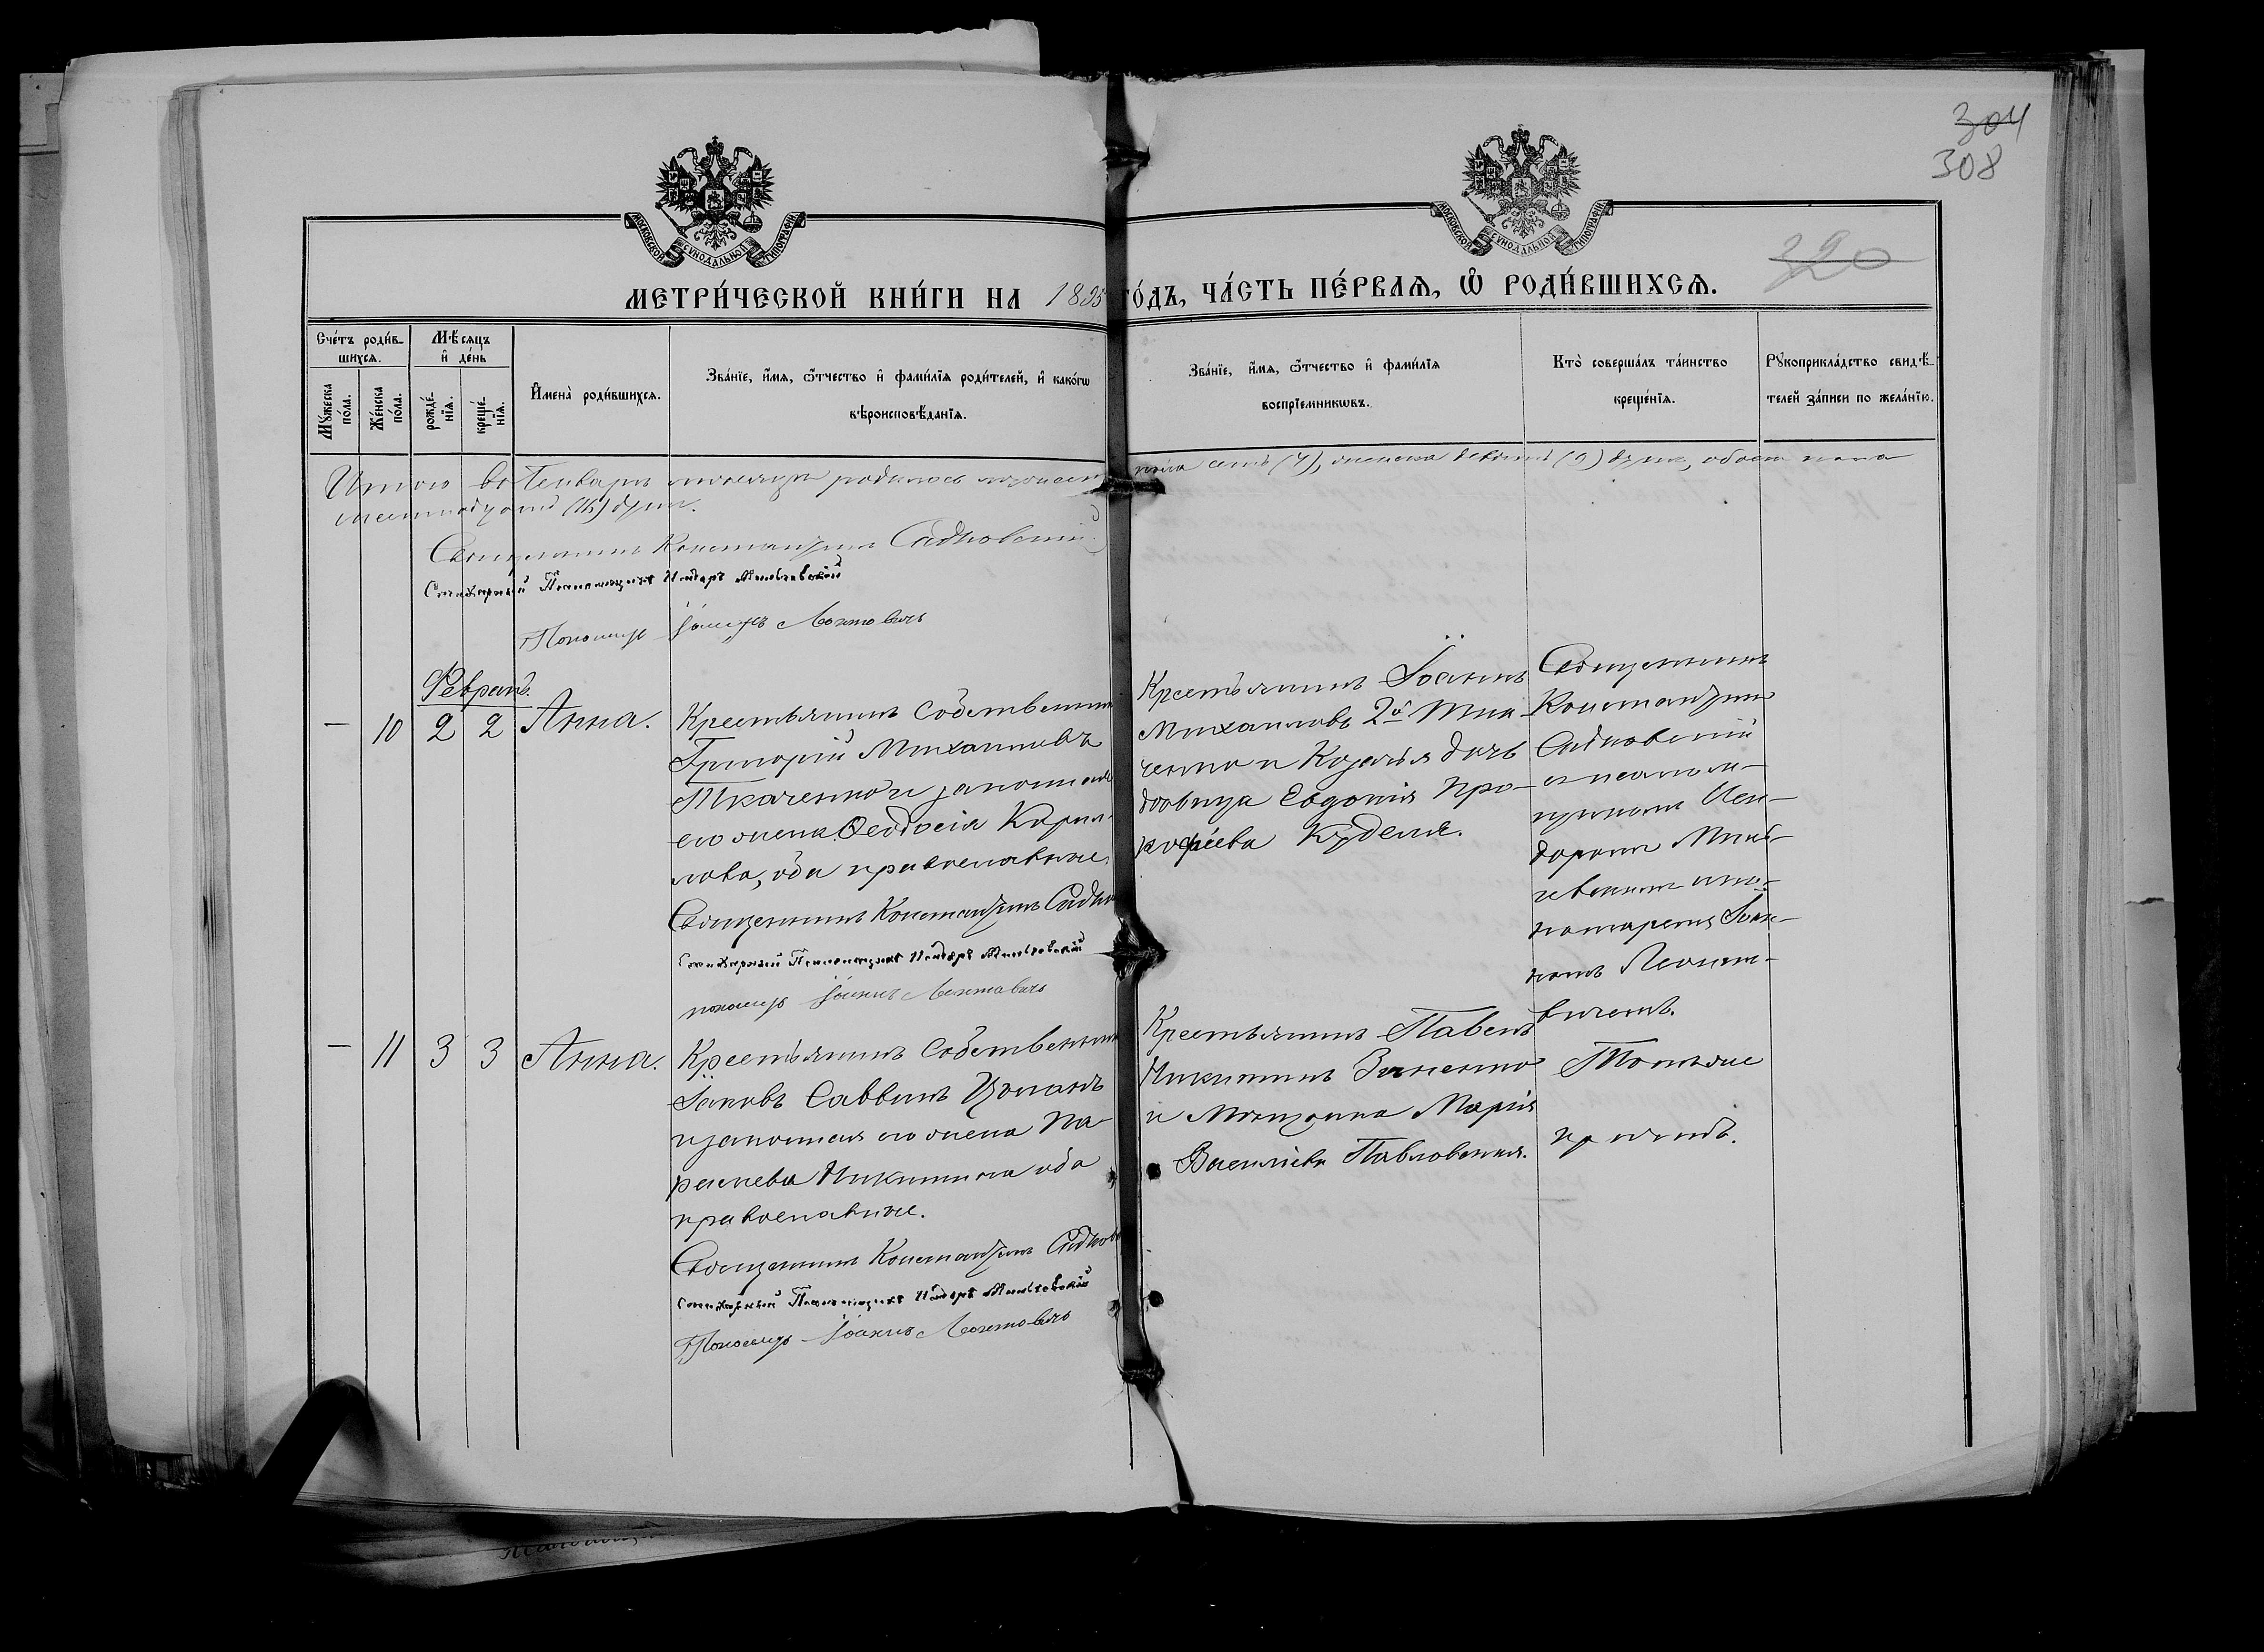 304
308
320
МОСКОВСКОЙ СѴНОДАЛЬНОЙ ТИПОГРАФІИ
МОСКОВСКОЙ СѴНОДАЛЬНОЙ ТИПОГРАФІИ
МЕТРИ́ЧЕСКОЙ КНИ́ГИ НА 1895 ГО́ДЪ, ЧА́СТЬ ПЕ́РВАѦ, Ѿ РОДИ́ВШИХСѦ.
Сче́тъ роди́в-
шихсѧ.
Мꙋ́жеска по́ла.
Же́нска по́ла.
Мѣ́сѧцъ
и҆ де́нь
рожде́-
нїѧ.
креще́-
нїѧ.
И҆мена̀ роди́вшихсѧ.
Зва́нїе, и҆́мѧ, ѻ҆́тчество и҆ фами́лїѧ роди́телей, и҆ како́гѡ
вѣроисповѣ́данїѧ.
Зва́нїе, и҆́мѧ, ѻ҆́тчество и҆ фами́лїѧ
воспрїе́мникѡвъ.
Кто̀ соверша́лъ та́инство
креще́нїѧ.
Рꙋкоприкла́дство свидѣ́-
телей за́писи по жела́нїю.
Итого въ Генварѣ мѣсяцѣ родилось мужеска пола семь (7), женска девять (9) душъ, обоего пола
шестнадцать (16) душъ.
Священникъ Константинъ Садковскій
Сверхштатный Псаломщикъ Исидоръ
Пономарь Іоаннъ Леонтовичъ
Февраль.
— 10 2 2 Анна.
Крестьянинъ собственникъ
Григорій Михаиловъ
Ткаченко и законная
его жена Ѳеодосія Кирил-
лова, оба православные
Священникъ Константинъ Садков
Псаломщикъ Исидоръ
пономарь Іоаннъ Леонтовичъ
Крестьянинъ Іоаннъ
Михаиловъ 2й Тка-
ченко и Козачья дочь
вдовица Евдокія Про-
кофіева Куделя.
Священникъ
Константинъ
Садковскій
съ псалом-
щикомъ Иси-
доромъ
и по-
номаремъ Іоан-
номъ Леонто-
вичемъ.
— 11 3 3 Анна.
Крестьянинъ собственникъ
Іаковъ Саввинъ
и законная его жена Па-
раскева Никитина оба
православные.
Священникъ Константинъ Садков
Псаломщикъ Исидоръ
Пономарь Іоаннъ Леонтовичъ
Крестьянинъ Павелъ
Никитинъ Зинченко
и Мѣщанка Марія
Василіева Павловская.
Тотъ же
причтъ.